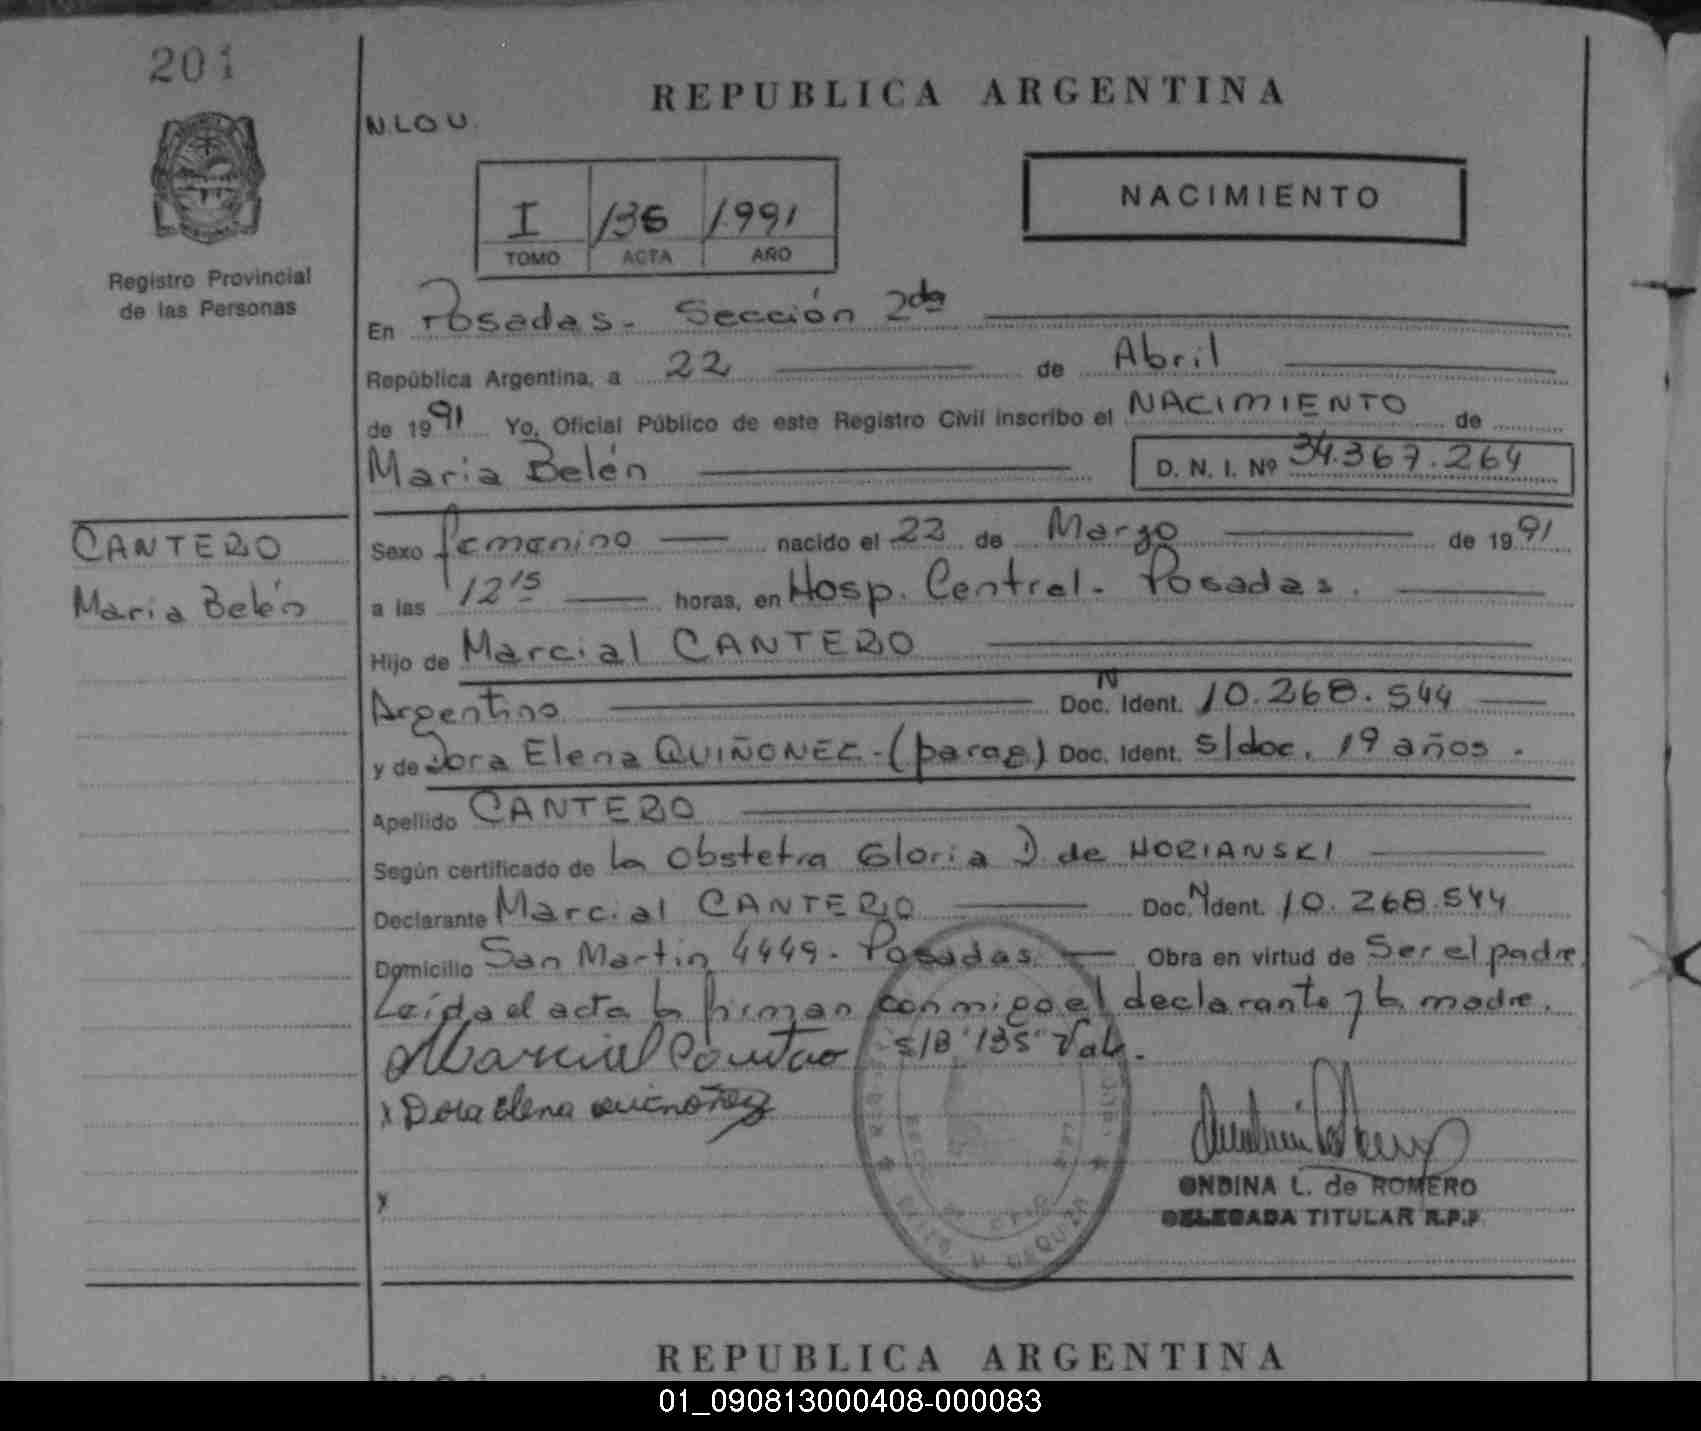 201
REPUBLICA ARGENTINA
N.LO U.
NACIMIENTO
I 136 1991
TOMO ACTA AÑO
Registro Provincial
de las Personas
En Posadas. Sección 2da
República Argentina, a 22 de Abril
de 1991 Yo, Oficial Público de este Registro Civil inscribo el NACIMIENTO de
Maria Belén D. N. I. Nº 34.367.264
CANTERO
Maria Belén
Sexo femenino nacido el 22 de Marzo de 1991
a las 12 15 horas, en Hosp. Central. Posadas.
Hijo de Marcial CANTERO
Argentino Doc. N Ident. 10.268.544
y de Dora Elena QUIÑONEZ - (parag) Doc. Ident. s/doc. 19 años.
Apellido CANTERO
Según certificado de la Obstetra Gloria D. de HORIANSKI
Declarante Marcial CANTERO Doc. N Ident. 10.268.544
Domicilio San Martin 4449. Posadas. Obra en virtud de Ser el padre.
Leída el acta la firman conmigo el declarante y la madre.
Marcial Cantero S/B "135" Vale.
x Dora Elena Quiñonez
x
ONDINA L. de ROMERO
DELEGADA TITULAR R.P.P.
REPUBLICA ARGENTINA
01_090813000408-000083